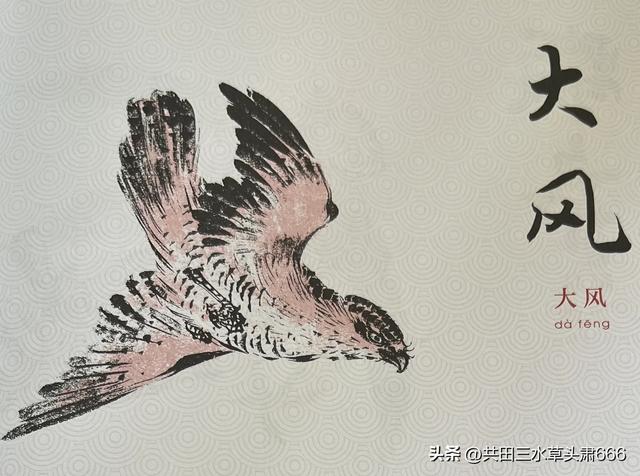 大风
大风
dà fēng
头条 @共田三水草头肃666